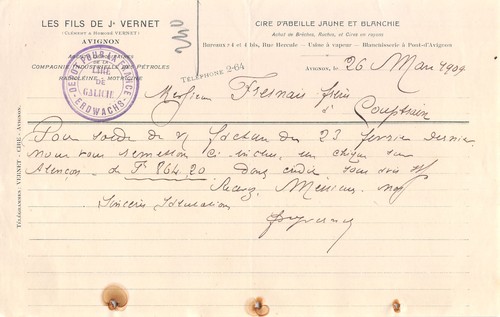 LES FILS DE Jh VERNET
(Clément & Edmond VERNET)
AVIGNON
COMPAGNIE INDUSTRIELLE DES PÉTROLES
HAMOLEINE - MOTRICINE
DÉPOT POUR LA FRANCE
CIRE
DE
GALICIE
ERDWACHS
CIRE D'ABEILLE JAUNE ET BLANCHIE
Achat de Brèches, Ruches, et Cires en rayons
Bureaux 4 et 4 bis, Rue Hercule - Usine à vapeur - Blanchisserie à Pont-d'Avignon
TÉLÉPHONE 2-64
Avignon, le 26 Mars 1909
Messieurs Fresnais frères
à Couptrain
Pour solde de n/ facture du 23 février dernier
nous vous remettons ci-inclus, un chèque sur
Alençon de F 264.20 Dont crédit sous avis
Recevez, Messieurs, nos
Sincères Salutations
Télégrammes: VERNET - CIRE - Avignon.